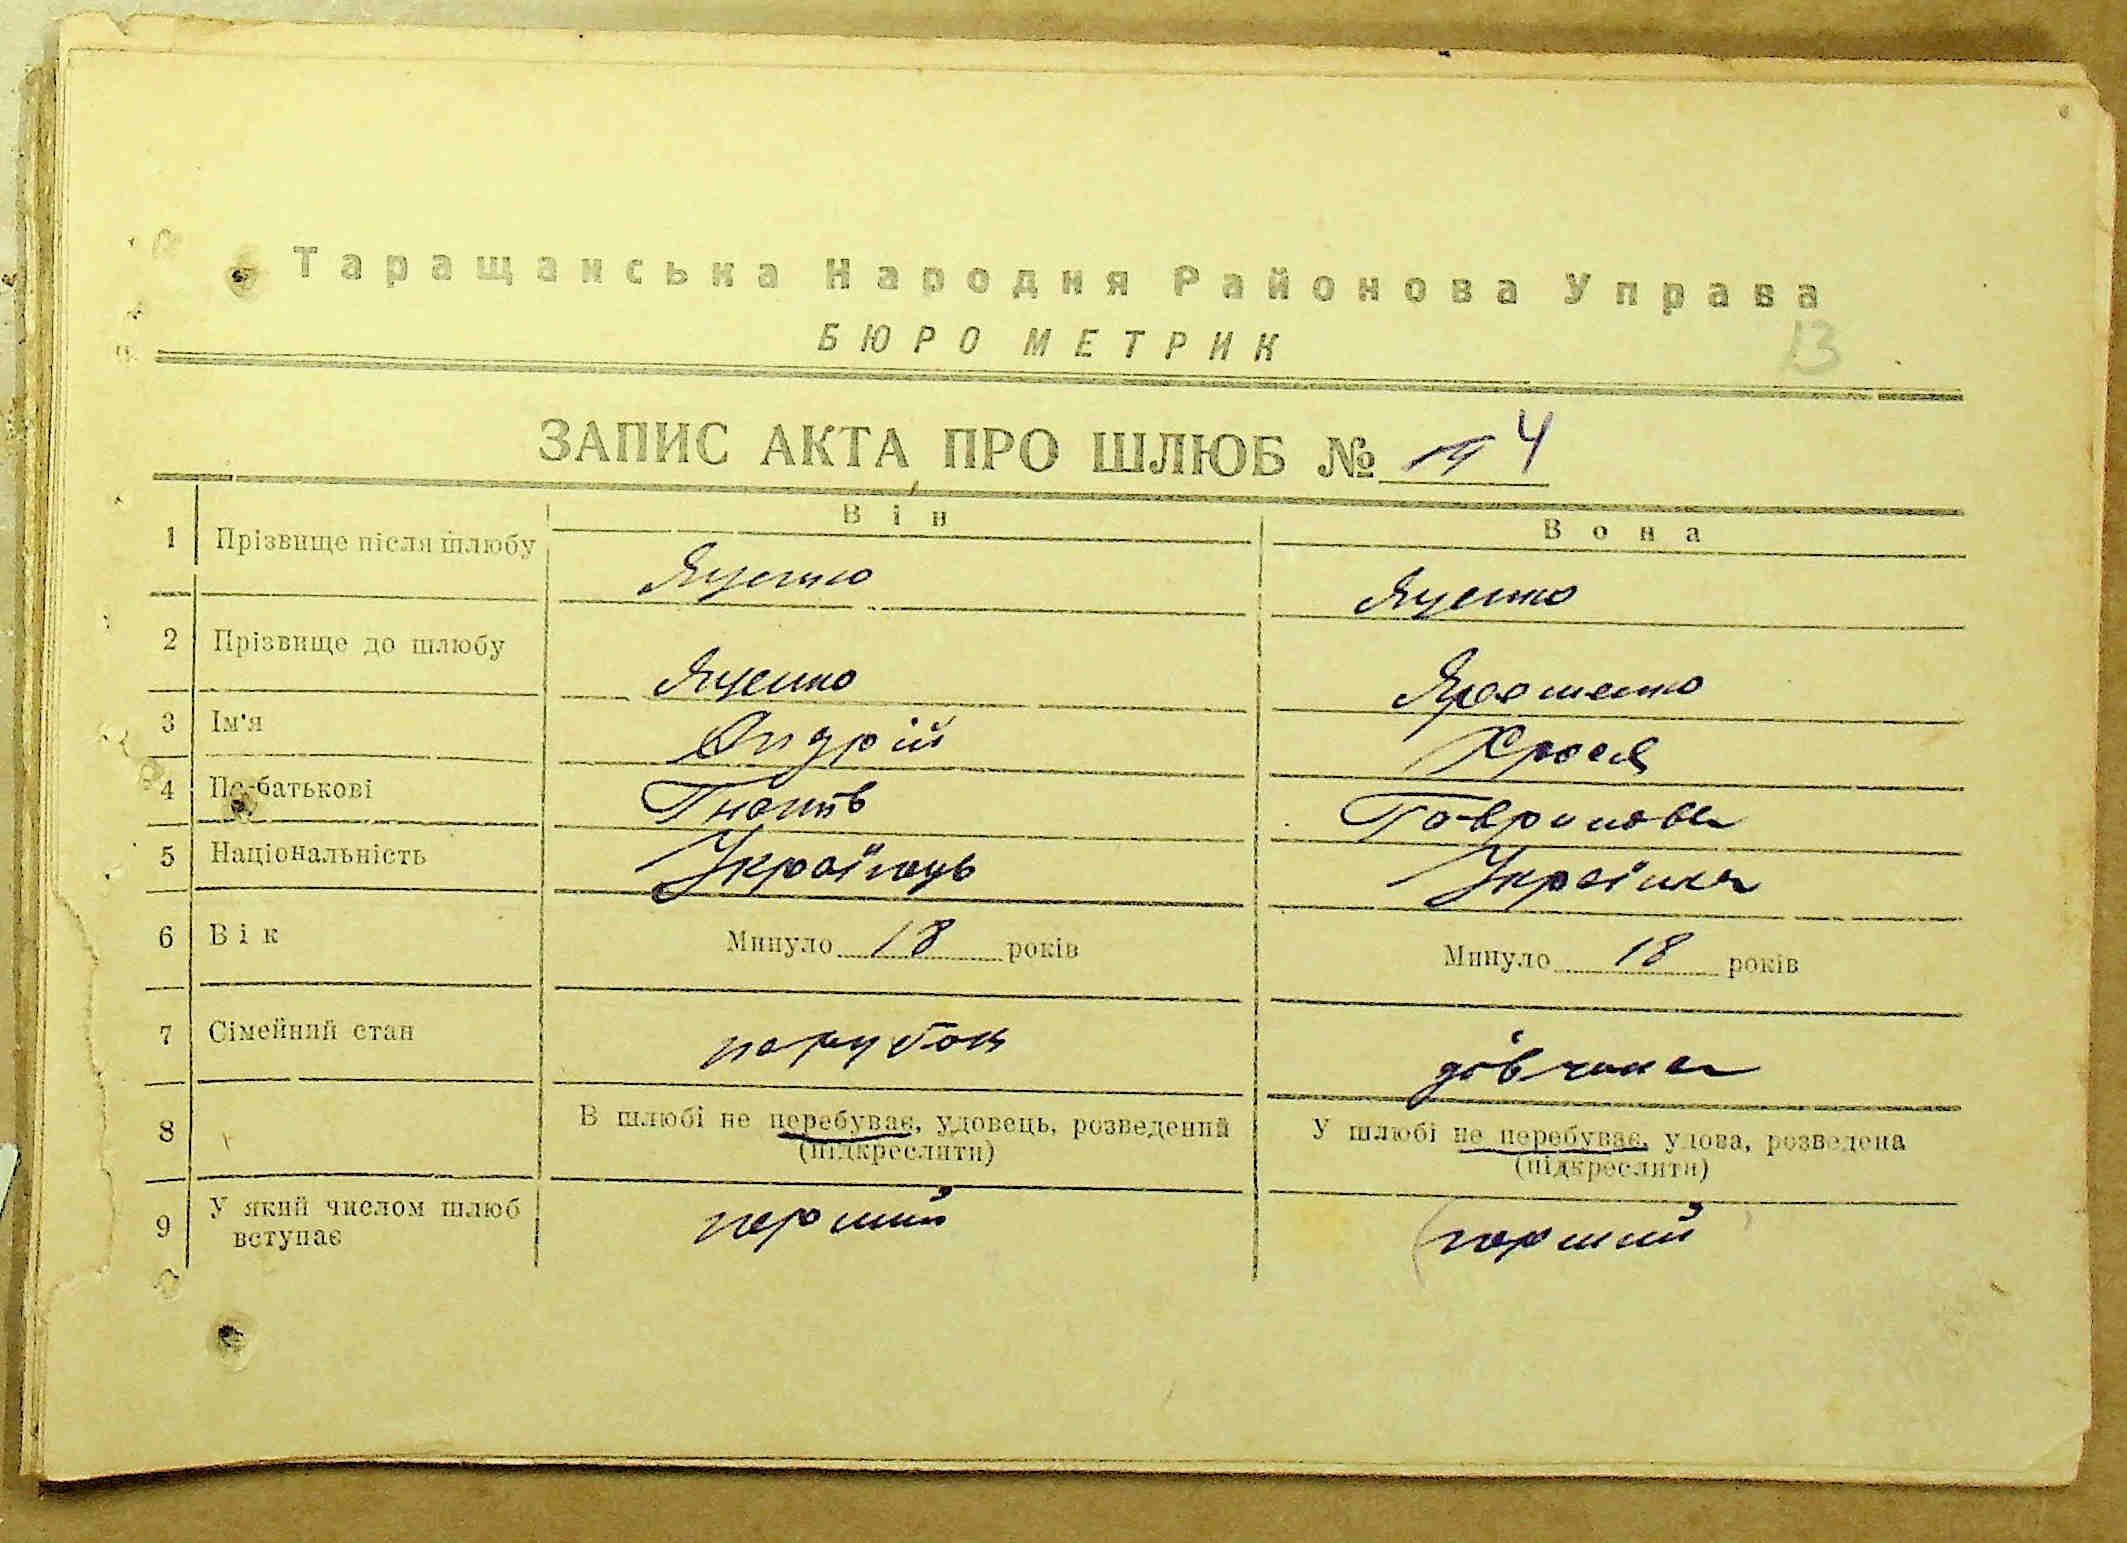 Таращанська Народня Районова Управа
БЮРО МЕТРИК
13
ЗАПИС АКТА ПРО ШЛЮБ № 4
Він Вона
1 Прізвище після шлюбу Яценко Яценко
2 Прізвище до шлюбу Яценко Ярошенко
3 Ім'я Андрій Хрося
4 По-батькові Гнатів Гаврилова
5 Національність Українець Українка
6 Вік Минуло 18 років Минуло 18 років
7 Сімейний стан парубок дівчина
8 В шлюбі не перебуває, удовець, розведений У шлюбі не перебуває, удова, розведена
(підкреслити) (підкреслити)
9 У який числом шлюб
вступає перший перший